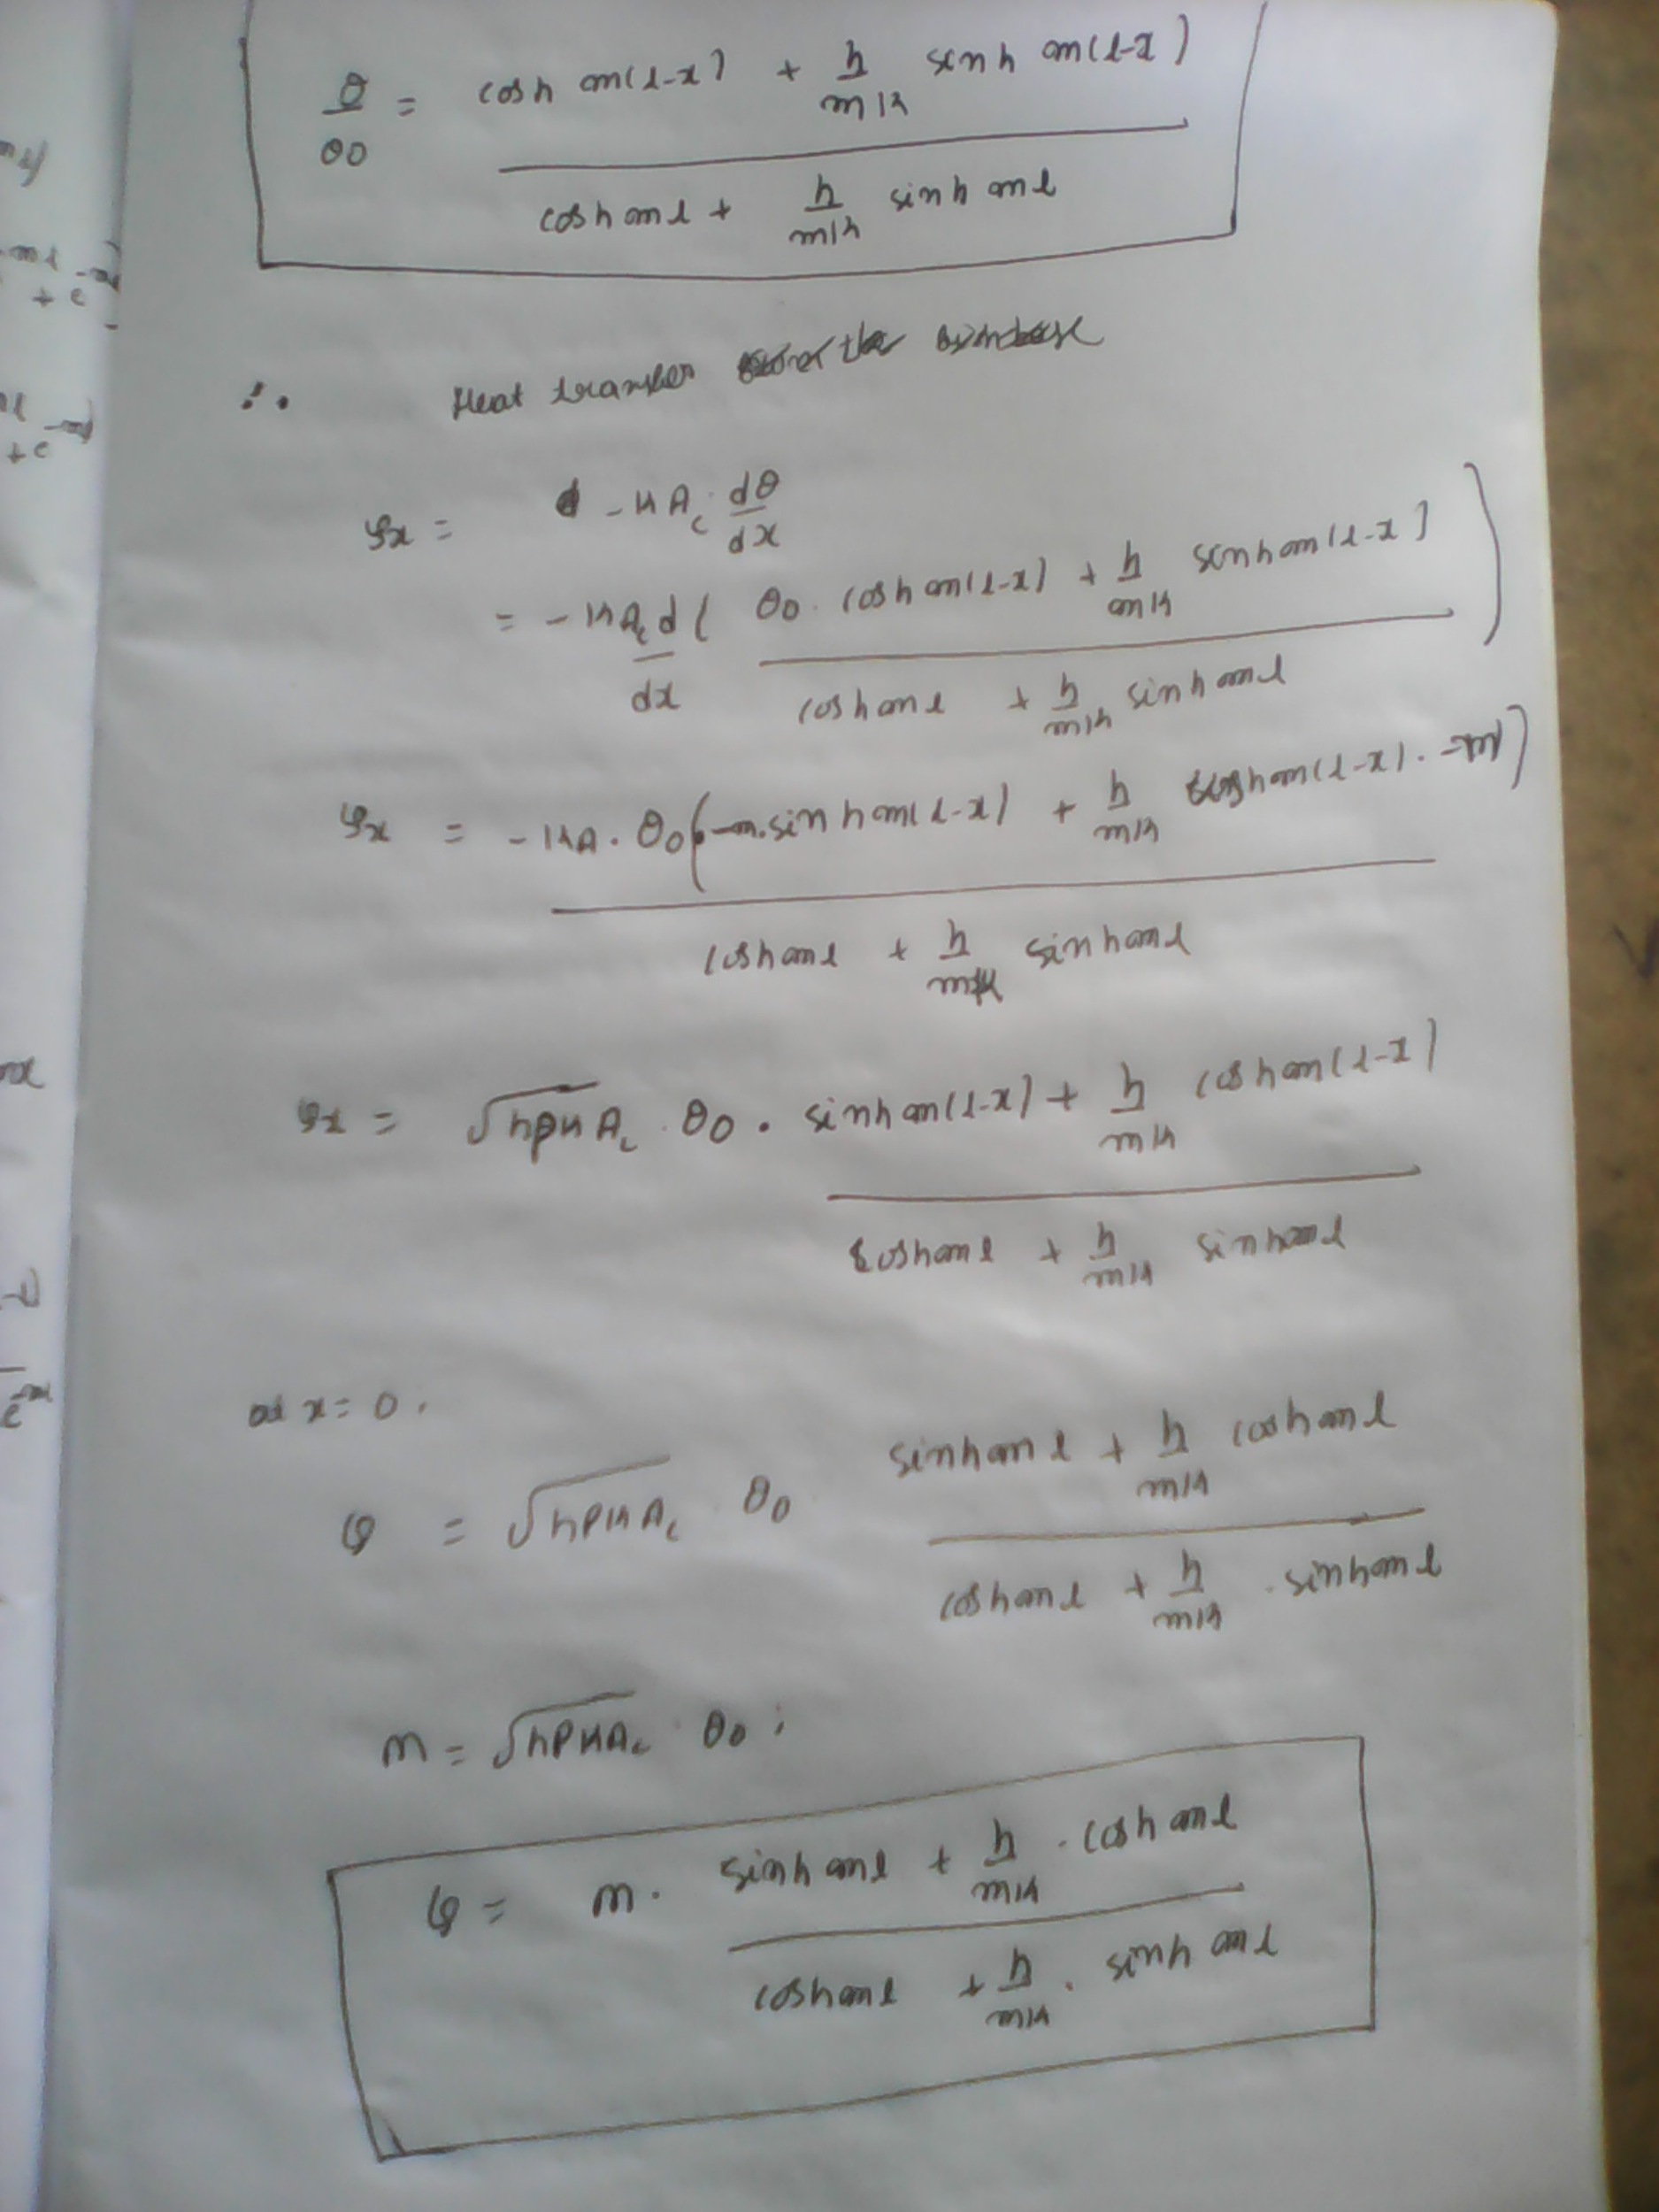 θ/θ0 = (cosh m(l-x) + h/mk sinh m(l-x)) / (cosh ml + h/mk sinh ml)
∴ Heat transfer
qx = -KAc dθ/dx
= -KAc d/dx ( θ0 . cosh m(l-x) + h/mk sinh m(l-x) / cosh ml + h/mk sinh ml )
qx = -KA . θ0 ( -m. sinh m(l-x) + h/mk cosh m(l-x) . -m ) / cosh ml + h/mk sinh ml
qx = √hpkAc . θ0 . sinh m(l-x) + h/mk cosh m(l-x) / cosh ml + h/mk sinh ml
at x = 0 .
Q = √hPKAc θ0 sinh ml + h/mk cosh ml / cosh ml + h/mk . sinh ml
M = √hPKAc . θ0 ;
Q = M . sinh ml + h/mk . cosh ml / cosh ml + h/mk . sinh ml